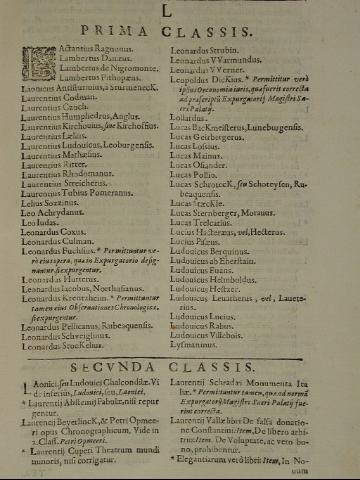 L
PRIMA CLASSIS.
LActantius Ragnonus.
Lambertus Danæus.
Lambertus de Nigromonte.
Lambertus Pithopæus.
Laonicus Antisturmius, à SturmenecK.
Laurentius Codman.
Laurentius Czoch.
Laurentius Humphedrus, Anglus.
Laurentius Kirchouius, sive Kirchofius.
Laurentius Lælius.
Laurentius Ludouicus, Leoburgensis.
Laurentius Mathæsius.
Laurentius Ritter.
Laurentius Rhodomanus.
Laurentius Streicherus.
Laurentius Tubius Pomeranus.
Lelius Sozzinus.
Leo Achrydanus.
Leo Iudas.
Leonardus Coxus.
Leonardus Culman.
Leonardus Fuchsius. * Permittuntur ve-
rò eius opera, qua in Expurgatorio desig-
nantur, si expurgentur.
Leonardus Hutterus.
Leonardus Iacobus, Northusanus.
Leonardus Krentzheim. * Permittuntur
tamen eius Obseruationes Chronologica,
si expurgentur.
Leonardus Pellicanus, Rubeaquensis.
Leonardus Schveiglinus.
Leonardus StocKelius.
Leonardus Strubin.
Leonardus VVarmundus.
Leonardus VVerner.
Leopoldus DicKius. * Permittitur verò
ipsius Oeconomia iuris, qua fuerit correcta
ad præscriptũ Expurgatorij Magistri Sa-
cri Palatij.
Lollardus.
Lucas BacKmeisterus, Luneburgensis.
Lucas Geirbergerus.
Lucas Lossius.
Lucas Mainus.
Lucas Osiander.
Lucas Pollio.
Lucas SchrotecK, seu Schoteysen, Ru-
beaquensis.
Lucas StæcKle.
Lucas Sternberger, Morauus.
Lucas Trelcatius.
Lucius Hacteræus, vel, Hecterus.
Lucius Pisæus.
Ludouicus Berquinus.
Ludouicus ab Eberstain.
Ludouicus Euans.
Ludouicus Helmboldus.
Ludouicus Hestzer.
Ludouicus Leuatherus, vel, Lauete-
rius.
Ludouicus Lucius.
Ludouicus Rabus.
Ludouicus Villebois.
Lysmaninus.
SECVNDA CLASSIS.
LAonici, seu Ludouici Chalcondilæ. Vi-
de: inferiùs, Ludouici, seu, Laonici.
* Laurentij Abstemij Fabulæ, nisi repur-
gentur.
Laurentij BeyerlincK, & Petri Opmee-
ri opus Chronographicum, Vide in
2. Class. Petri Opmeeri.
* Laurentij Cuperi Theatrum mundi
minoris, nisi corrigatur.
Laurentij Schradri Monumenta Ita-
liæ. * Permittuntur tamen, qua ad normã
Expurgatorij Magistri Sacri Palatij fue-
rint correcta.
Laurentij Vallæ libri De falsa donatio-
ne Constantini: Item, De libero arbi-
trio: Item. De Voluptate, ac vero bo-
no, prohibentur.
* Elegantiarum verò libri: Item, In No-
uum